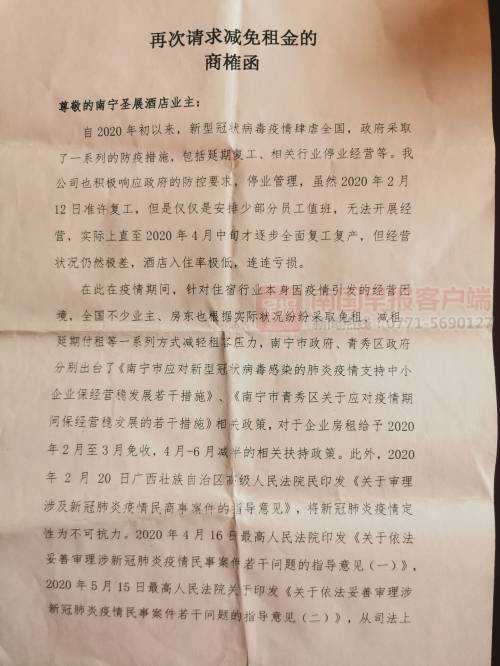 再次请求减免租金的
商榷函
尊敬的南宁圣展酒店业主：
自 2020 年初以来，新型冠状病毒疫情肆虐全国，政府采取
了一系列的防疫措施，包括延期复工、相关行业停业经营等。我
公司也积极响应政府的防控要求，停业管理，虽然 2020 年 2 月
12 日准许复工，但是仅仅是安排少部分员工值班，无法开展经
营，实际上直至 2020 年 4 月中旬才逐步全面复工复产，但经营
状况仍然极差，酒店入住率极低，连连亏损。
在此在疫情期间，针对住宿行业本身因疫情引发的经营困
境，全国不少业主、房东也根据实际状况纷纷采取免租、减租、
延期付租等一系列方式减轻租客压力，南宁市政府、青秀区政府
分别出台了《南宁市应对新型冠状病毒感染的肺炎疫情支持中小
企业保经营稳发展若干措施》、《南宁市青秀区关于应对疫情期
间保经营稳发展的若干措施》相关政策，对于企业房租给予 2020
年 2 月至 3 月免收，4 月-6 月减半的相关扶持政策。此外，2020
年 2 月 20 日广西壮族自治区高级人民法院民印发《关于审理
涉及新冠肺炎疫情民商事案件的指导意见》，将新冠肺炎疫情定
性为不可抗力。2020 年 4 月 16 日最高人民法院印发《关于依法
妥善审理涉新冠肺炎疫情民事案件若干问题的指导意见（一）》，
2020 年 5 月 15 日最高人民法院关于印发《关于依法妥善审理涉
新冠肺炎疫情民事案件若干问题的指导意见（二）》，从司法上
南国早报客户端
0771-5690127